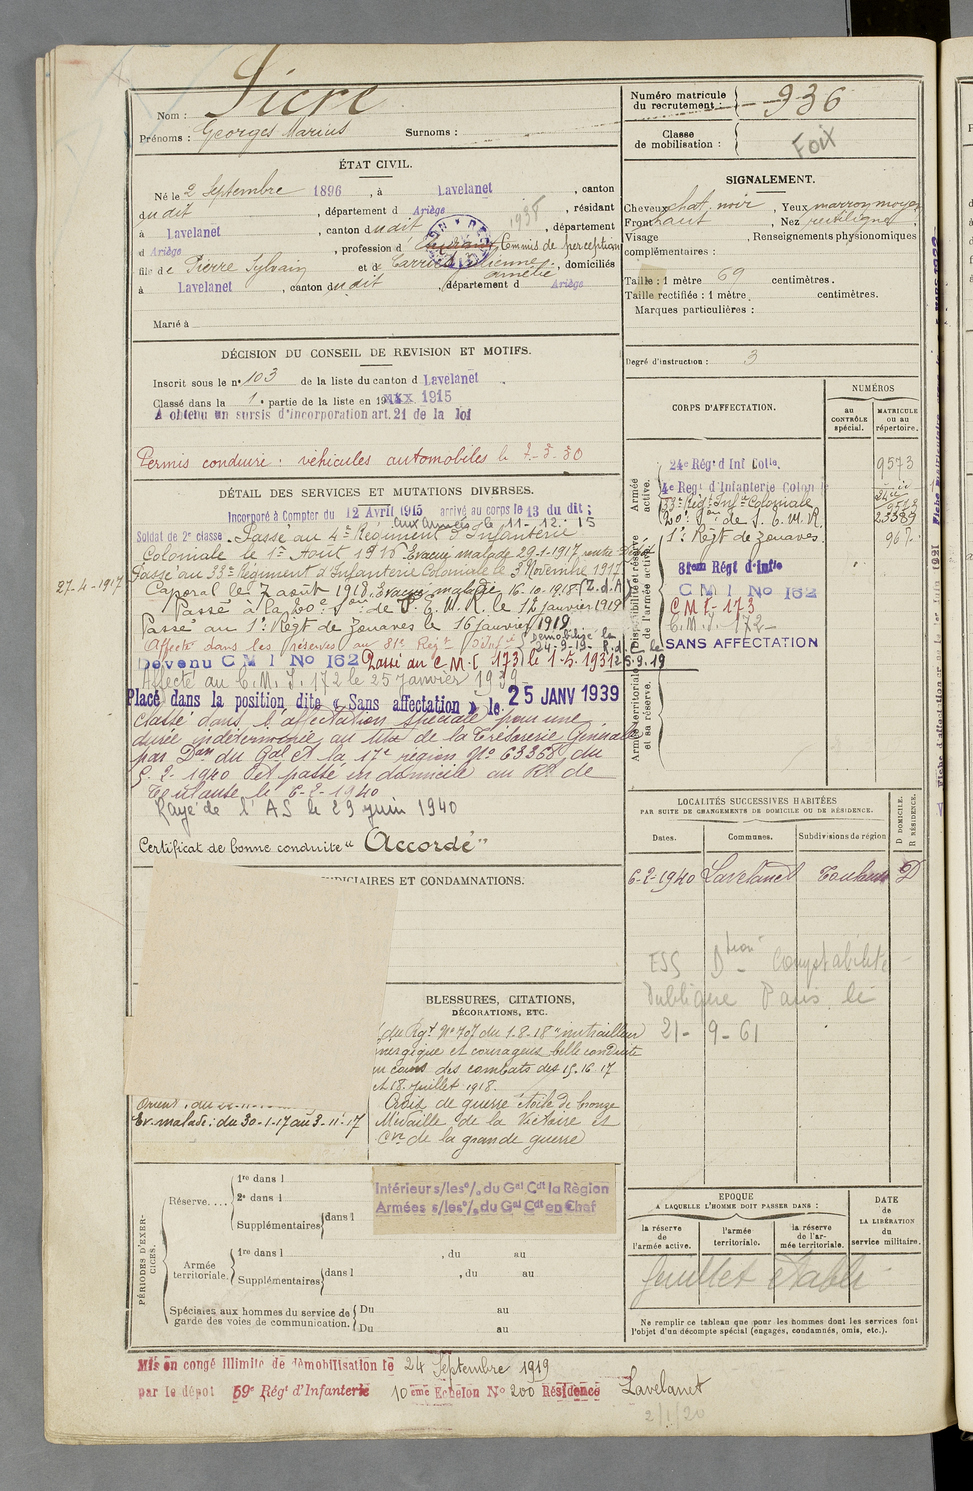 Nom : Sicre
Prénoms : Georges Marius Surnoms :
Numéro matricule du recrutement : 936
Classe de mobilisation :
Foix
ÉTAT CIVIL.
Né le 2 Septembre 1896, à Lavelanet, canton
dudit, département d Ariège, résidant
1938
à Lavelanet, canton dudit, département
d Ariège, profession d Commis de perception
fils de Pierre Sylvain et d Carrié Julienne Amélie, domiciliés
à Lavelanet, canton dudit, département d Ariège
Marié à
SIGNALEMENT.
Cheveux chat. noir, Yeux marron moyen
Front haut, Nez rectiligne
Visage, Renseignements physionomiques
complémentaires :
Taille : 1 mètre 69 centimètres.
Taille rectifiée : 1 mètre centimètres.
Marques particulières :
Degré d'instruction : 3
DÉCISION DU CONSEIL DE REVISION ET MOTIFS.
Inscrit sous le n° 103 de la liste du canton d Lavelanet
Classé dans la 1e partie de la liste en 19 1915
A obtenu un sursis d'incorporation art. 21 de la loi
Permis conduire : véhicules automobiles le 7-3-30
DÉTAIL DES SERVICES ET MUTATIONS DIVERSES.
Incorporé à Compter du 12 Avril 1915 arrivé au corps le 13 du dit ;
aux armées le 11-12-15
Soldat de 2e classe. Passé au 4e Régiment d'Infanterie
Coloniale le 1er Août 1916 Evacué malade 29-1-1917
Passé au 33e Régiment d'Infanterie Coloniale le 3 Novembre 1917
27-4-1917
Caporal le 7 août 1918. Evacué malade 16-10-1918 (Z.d.A)
Passé à la 20e Son de S.E.M.R. le 12 janvier 1919
Passé au 1er Régt de Zouaves le 16 janvier 1919
Affecté dans les réserves au 81e Régt d'Infie Démobilisé le 24-9-19
Devenu C M I No 162 Passé au C M I 173 le 1-5-1931
25.9.19
Affecté au C.M.I. 172 le 25 janvier 1939
Placé dans la position dite « Sans affectation » le 25 JANV 1939
Classé dans l'affectation spéciale pour une
durée indéterminée au titre de la Trésorerie Générale
par Don du Gal Ct la 17e région No 63368 du
5-2-1940 et passé en domicile au Rt de
Toulouse le 6-2-1940
Rayé de l'AS le 29 juin 1940
Certificat de bonne conduite " Accordé "
CORPS D'AFFECTATION.
NUMÉROS
au CONTRÔLE spécial.
MATRICULE ou au répertoire.
Armée active.
24e Régt d Inf Colle. 9573
4e Regt d'Infanterie Colon
33e Régt Infie Coloniale
20e Son de S.E.M.R. 23389
1er Régt de Zouaves
Disponibilité et réserve de l'armée active.
81eme Régt d'Infie
C M I No 162
C M I - 173
C. M. I. 172
SANS AFFECTATION
Armée territoriale et sa réserve.
LOCALITÉS SUCCESSIVES HABITÉES
PAR SUITE DE CHANGEMENTS DE DOMICILE OU DE RÉSIDENCE.
Dates. Communes. Subdivisions de région
D DOMICILE. R RÉSIDENCE.
6-2-1940 Lavelanet Toulouse D
ESS Dtion Comptabilité
Publique Paris le
21-9-61
JUDICIAIRES ET CONDAMNATIONS.
BLESSURES, CITATIONS,
DÉCORATIONS, ETC.
du Rgt No 707 du 1-8-18 "mitrailleur
énergique et courageux belle conduite
au cours des combats des 15.16.17
et 18 juillet 1918.
Croix de guerre étoile de bronze
Médaille de la Victoire et
Cve de la grande guerre
Orient : du
Ev. malade : du 30-1-17 au 3-11-17
PÉRIODES D'EXERCICES.
Réserve....
1re dans l
2e dans l
Supplémentaires dans l
Intérieur s/les °/° du Gal Cdt la Région
Armées s/les °/° du Gal Cdt en Chef
Armée territoriale.
1re dans l, du au
Supplémentaires dans l, du au
Spéciales aux hommes du service de garde des voies de communication.
Du au
Du au
EPOQUE
A LAQUELLE L'HOMME DOIT PASSER DANS :
la réserve de l'armée active.
l'armée territoriale.
la réserve de l'armée territoriale.
DATE de LA LIBÉRATION du service militaire.
feuillet établi
Ne remplir ce tableau que pour les hommes dont les services font
l'objet d'un décompte spécial (engagés, condamnés, omis, etc.).
Mis en congé illimité de démobilisation le 24 Septembre 1919
par le dépôt 59e Régt d'Infanterie 10eme Echelon No 200 Résidence Lavelanet
2/1/20